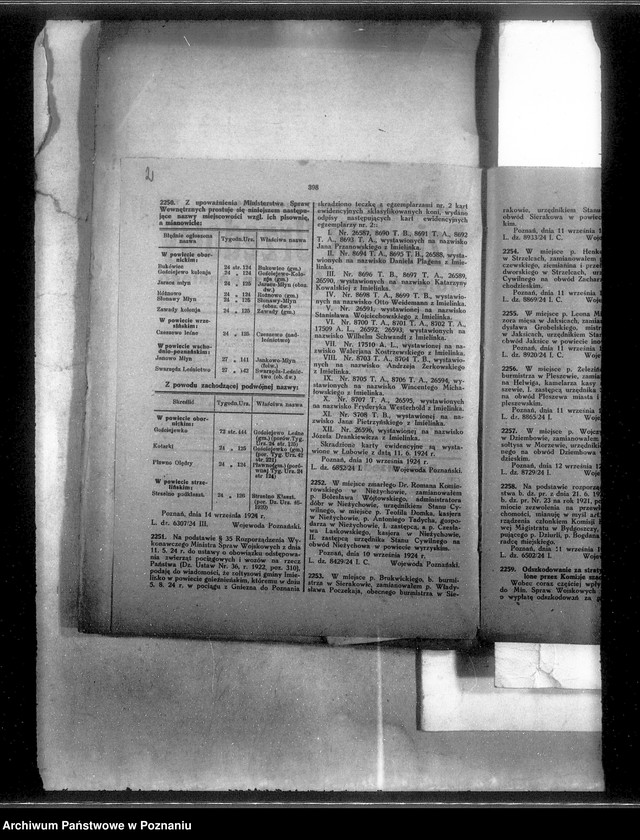 398
2250. Z upoważnienia Ministerstwa Spraw
Wewnętrznych prostuje się niniejszem następu-
jące nazwy miejscowości wzgl. ich pisownię,
a mianowicie:
Błędnie ogłoszona nazwa Tygodn.Urz. Właściwa nazwa
W powiecie obor-
nickim:
Bukówiec 24 str. 124 Bukowiec (gm.)
Gościejewo kolonja 24 „ 124 Gościejewo-Kolo-
nja (gm.)
Jaracz młyn 24 „ 125 Jaracz-Młyn (obsz.
dw.)
Różnowo 24 „ 124 Rożnowo (gm.)
Słonawy Młyn 24 „ 125 Słonawy-Młyn
(obsz. dw.)
Zawady kolonja 24 „ 125 Zawady (gm.)
W powiecie wrze-
sińskim:
Czeszewo leśne 24 „ 125 Czeszewo (nad-
leśnictwo)
W powiecie wscho-
dnio-poznańskim:
Janowo Młyn 27 „ 141 Jankowo-Młyn
(folw.)
Swarzędz Leśnictwo 27 „ 142 Swarzędz-Leśnic-
two (ob. dw.)
Z powodu zachodzącej podwójnej nazwy:
Skreślić Tygodn.Urz. Właściwa nazwa
W powiecie obor-
nickim:
Gościejewko 72 str. 444 Gościejewo Leśne
(gm.) (porów. Tyg.
Urz. 24 str. 125)
Kotarki 24 „ 125 Gościejewko (gm.)
(por. Tyg. Urz. 42
str. 221)
Pławno Olędry 24 „ 124
(gm.) (porów-
naj Tyg. Urz. 24
str. 124)
W powiecie strze-
lińskim:
Strzelno poklaszt. 24 „ 126 Strzelno Klaszt.
(por. Dz. Urz.
Poznań, dnia 14 września 1924 r.
L. dz. 6307/24 III. Wojewoda Poznański.
2251. Na podstawie § 35 Rozporządzenia Wy-
konawczego Ministra Spraw Wojskowych z dnia
11. 5. 24 r. do ustawy o obowiązku odstępowa-
nia zwierząt pociągowych i wozów na rzecz
Państwa (Dz. Ustaw Nr. 36, r. 1922, poz. 310),
podaję do wiadomości, że sołtysowi gminy Imie-
linko w powiecie gnieźnieńskim, któremu w dniu
5. 8. 24 r. w pociągu z Gniezna do Poznania
skradziono teczkę z egzemplarzami nr. 2 kart
ewidencyjnych sklasyfikowanych koni, wydano
odpisy następujących kart ewidencyjnych
egzemplarzy nr. 2:
I. Nr. 26587, 8690 T. B., 8691 T. A., 8692
T. A., 8693 T. A., wystawionych na nazwisko
Jana Przanowskiego z Imielinka.
II. Nr. 8694 T. A., 8695 T. B., 26588, wysta-
wionych na nazwisko Daniela Prejens z Imie-
linka.
III. Nr. 8696 T. B., 8697 T. A., 26589,
26590, wystawionych na nazwisko Katarzyny
Kowalskiej z Imielinka.
IV. Nr. 8698 T. A., 8699 T. B., wystawio-
nych na nazwisko Otto Weidemann z Imielinka.
V. Nr. 26591, wystawionej na nazwisko
Stanisława Wojciechowskiego z Imielinka.
VI. Nr. 8700 T. A., 8701 T. A., 8702 T. A.,
17509 A L., 26592, 26593, wystawionych na
nazwisko Wilhelm Schwandt z Imielinka.
VII. Nr. 17510 A L., wystawionej na na-
zwisko Walerjana Kostrzewskiego z Imielinka.
VIII. Nr. 8703 T. A., 8704 T. B., wystawio-
nych na nazwisko Andrzeja Zerkowskiego
z Imielinka.
IX. Nr. 8705 T. A., 8706 T. A., 26594, wy-
stawionych na nazwisko Wincentego Micha-
łowskiego z Imielinka.
X. Nr. 8707 T. A., 26595, wystawionych
na nazwisko Fryderyka Westerhold z Imielinka.
XI. Nr. 8708 T. B., wystawionej na na-
zwisko Jana Pietrzyńskiego z Imielinka.
XII. Nr. 26596, wystawionej na nazwisko
Józefa Drankiewicza z Imielinka.
Skradzione karty ewidencyjne są wysta-
wione w Łubowie z datą 11. 6. 1924 r.
Poznań, dnia 10 września 1924 r.
L. dz. 6852/24 I. Wojewoda Poznański.
2252. W miejsce zmarłego Dr. Romana Komie-
rowskiego w Nieżychowie, zamianowałem
p. Bolesława Wojtowskiego, administratora
dóbr w Nieżychowie, urzędnikiem Stanu Cy-
wilnego, w miejsce p. Teofila Domka, kasjera
w Nieżychowie, p. Antoniego Tadycha, gospo-
darza w Nieżychowie, I. zastępcą, a p. Czesła-
wa Laskowskiego, kasjera w Nieżychowie,
II. zastępcą urzędnika Stanu Cywilnego na
obwód Nieżychowo w powiecie wyrzyskim.
Poznań, dnia 10 września 1924 r.
L. dz. 8429/24 I. C. Wojewoda Poznański.
2253. W miejsce p. Brukwickiego, b. burmi-
strza w Sierakowie, zamianowałem p. Włady-
sława Poczekaja, obecnego burmistrza w Sie-
rakowie, urzędnikiem Stanu
obwód Sierakowa w powiec
kim.
Poznań, dnia 11 września 1
L. dz. 8923/24 I. Woje
2254. W miejsce p. Henk
w Strzelcach, zamianowałem
czowskiego, ziemianina i przed
dworskiego w Strzelcach, urz
Cywilnego na obwód Zachar
chodzieskim.
Poznań, dnia 11 września
L. dz. 8869/24 I. Woje
2255. W miejsce p. Leona Mi
zora mięsa w Jaksicach, zamia
dysława Grobelskiego, mistr
w Jaksicach, urzędnikiem Stan
obwód Jaksice w powiecie inow
Poznań, dnia 11 września
L. dz. 8920/24 I. Woje
2256. W miejsce p. Żeleźni
burmistrza w Pleszewie, zamian
na Helwiga, kancelarza kasy
szewie, I. zastępcą urzędnika S
na obwód Pleszewa miasta i
pleszewskim.
Poznań, dnia 11 września
L. dz. 8865/24 I. Woje
2257. W miejsce p. Wojcy
w Dziembowie, zamianowałem
sołtysa w Morzewie, urzędnik
nego na obwód Dziembowa w
dzieskim.
Poznań, dnia 12 września 1
L. dz. 8729/24 I. Woje
2258. Na podstawie rozporzą
stwa b. dz. pr. z dnia 21. 6. 19
b. dz. pr. Nr. 23 na rok 1921, po
miocie zezwolenia na przewoż
chomości, mianuję w myśl art.
rządzenia członkiem Komisji P
wej Magistratu w Bydgoszczy,
pującego p. Dziurli, p. Bogdana
radcę miejskiego.
Poznań, dnia 11 września 1
L. dz. 6502/24 I. Woje
2259. Odszkodowanie za straty
lone przez Komisje szac
Wobec coraz częściej wpły
do Min. Spraw Wojskowych
o wypłatę odszkodowań za p
Archiwum Państwowe w Poznaniu